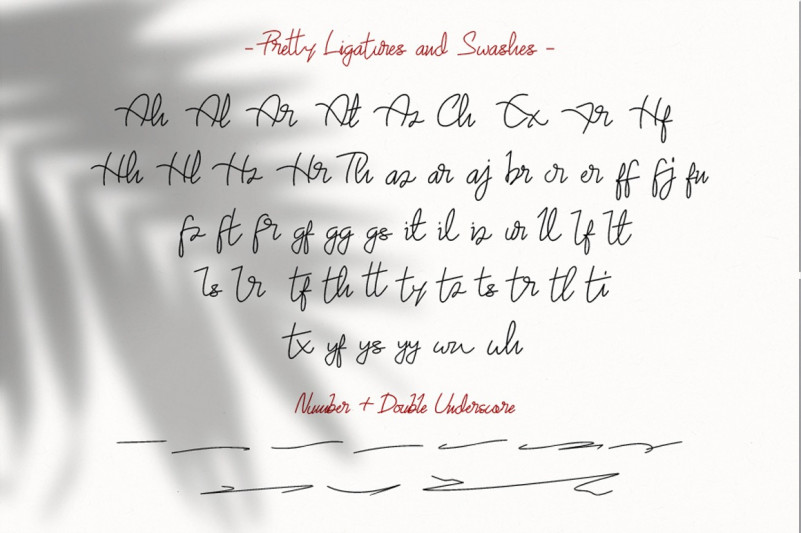 -Pretty Ligatures and Swashes -
Ah Al Ar At As Ch Ex Fr Hf
Hh Hl Hs Hr Th as ar aj br cr er ff fj fu
fs ft fr gf gg gs it il is ur ll lf lt
ls lr tf th tt ty ts ts tr tl ti
tx yf ys yy wn wh
Number + Double Underscore